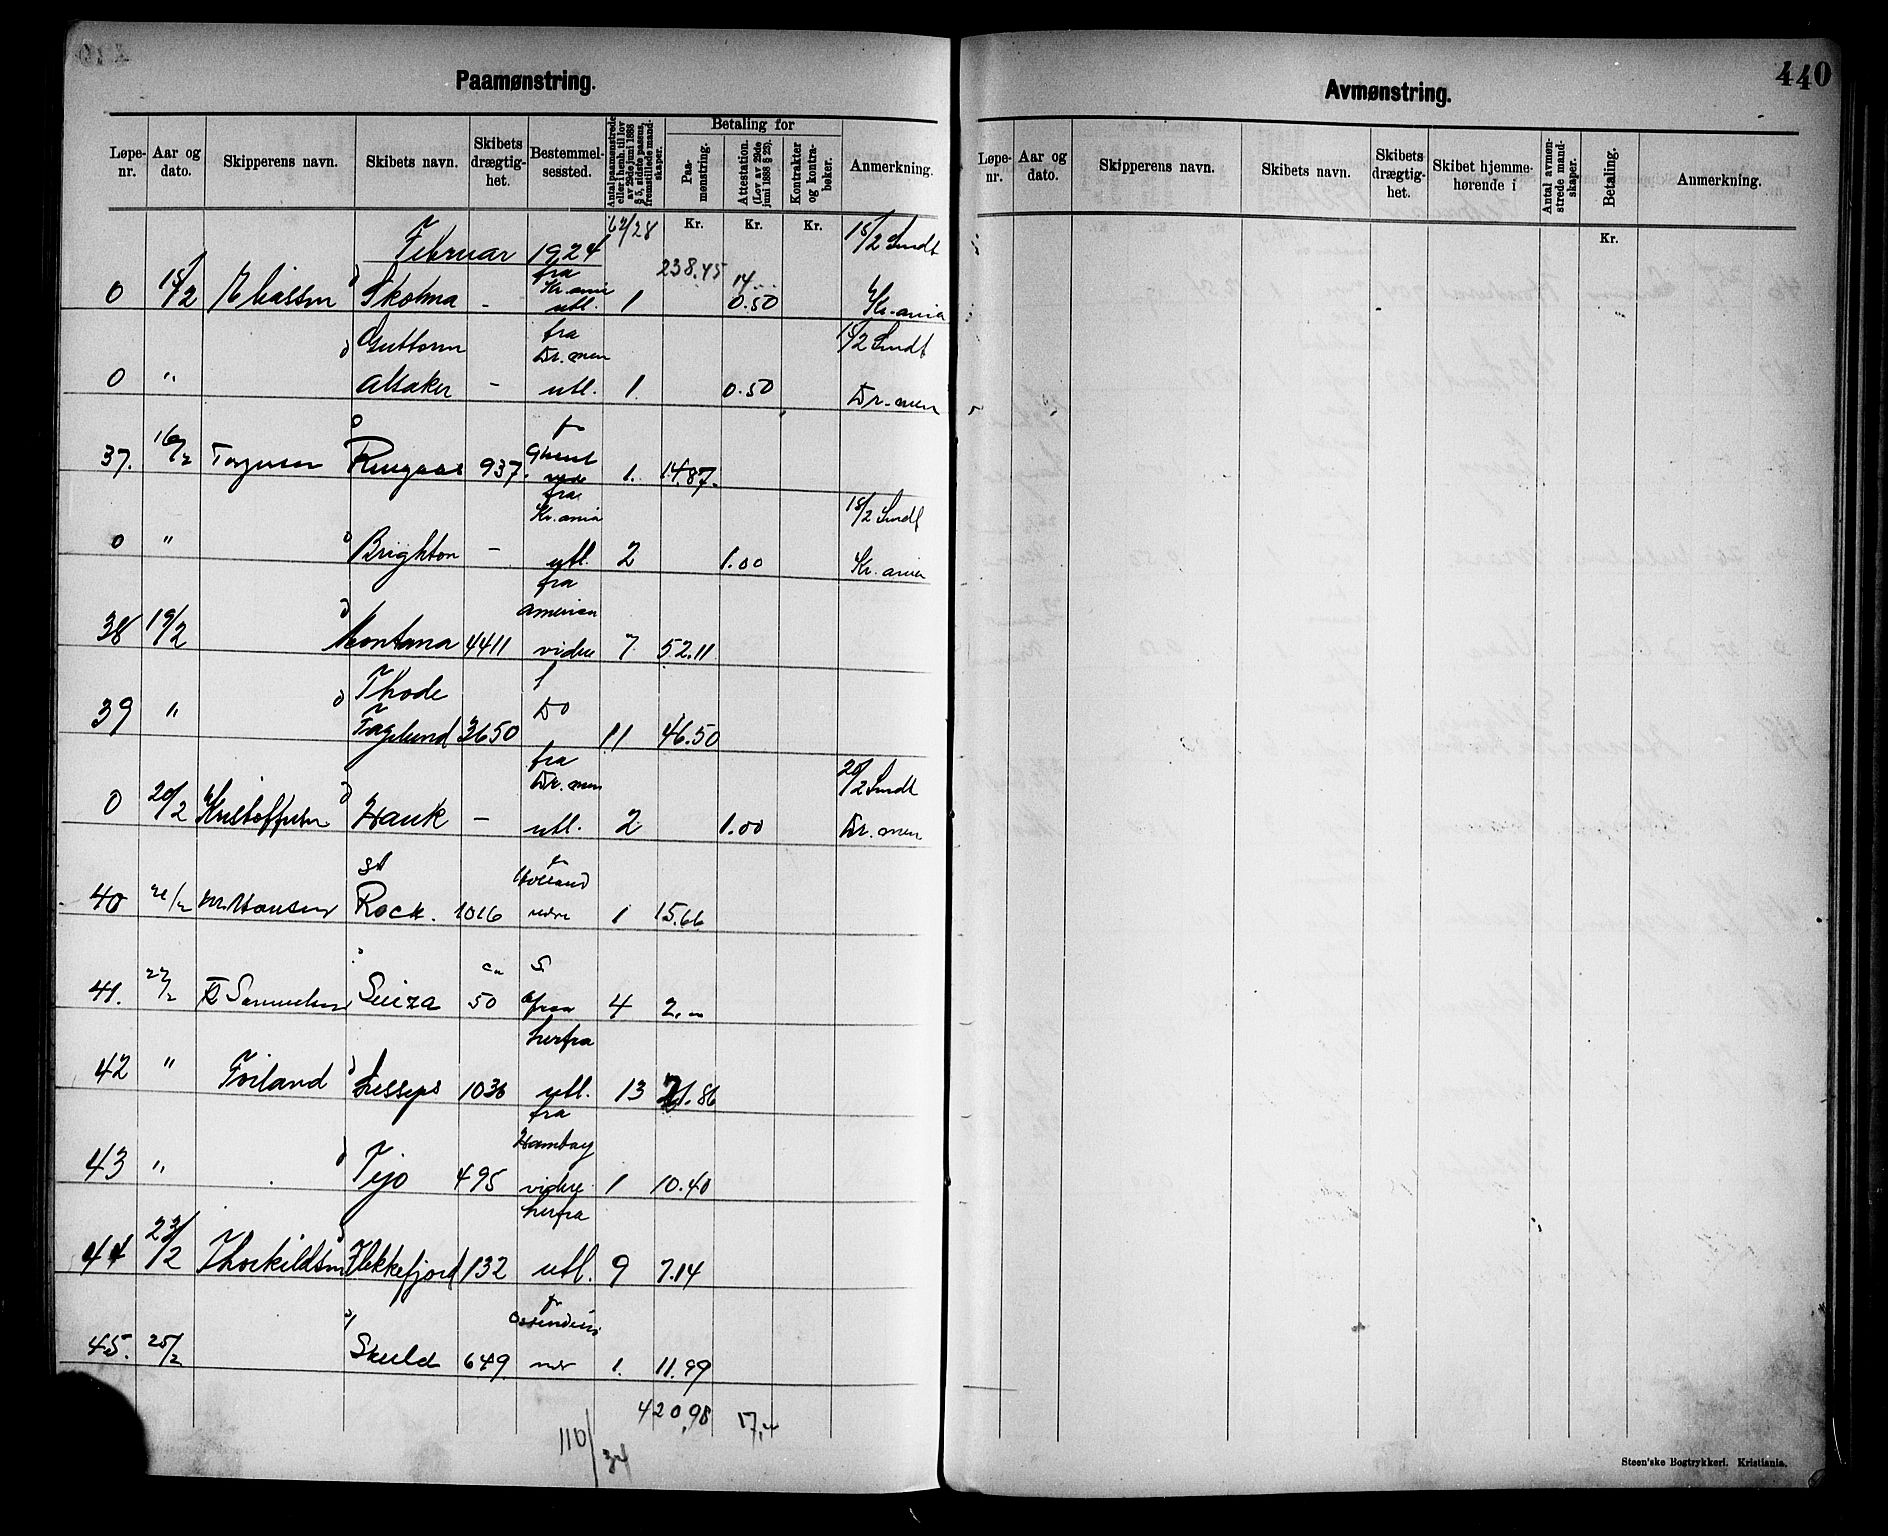 Paamønstring.
Løpe-nr. Aar og dato. Skipperens navn. Skibets navn. Skibets drægtig-het. Bestemmel-sessted. Antal paamønstrede eller i henh. til lov av 29de juni 1888 § 5, sidste passus, fremstillede mand-skaper. Betaling for Paa-mønstring. Attestation. (Lov av 29de juni 1888 § 29). Kontrakter og kontra-bøker. Anmerkning.
Kr. Kr. Kr.
62/28
Februar 1924
238.45 14
15/2 Smdt
fra
Kr.ania
0 15/2 Skotma - utl. 1 0.50 Kr.ania
Guttorm fra 15/2 Smdt
Dr.men
0 " Alsaker - utl. 1 0.50 Dr.men
37. 16/2 Ringaas 937. 1. 14.87.
fra
Kr.ania 15/2 Smdt
0 " Brighton - utl. 2 1.00 Kr.ania
fra
America
38 19/2 Montana 4411 videre 7 52.11
Thode f
Do
39 " Fagelund 3650 11 46.50
fra 20/2 Smdt
Dr.men
0 20/2 Kristoffersen Hauk - utl. 2 1.00 Dr.men
St Holland
40 21/2 M. Hansen Rock. 1016 1 15.66
ca S.
41. 22/2 Samuelsen 50 4 2.
herfra
42 " Foiland Lesseps 1036 utl. 13 21.86
fra
Hambog
43 " Tejo 495 videre 1 10.40
herfra
44 23/2 Thorkildsen Flekkefjord 132 utl. 9 7.14
45. 25/2 Skuld 649 1. 11.99
420,98 17,
110/34
Avmønstring.
440
Løpe-nr. Aar og dato. Skipperens navn. Skibets navn. Skibets drægtig-het. Skibet hjemme-hørende i Antal avmøn-strede mand-skaper. Betaling. Anmerkning.
Kr.
Steen'ske Bogtrykkeri. Kristiania.